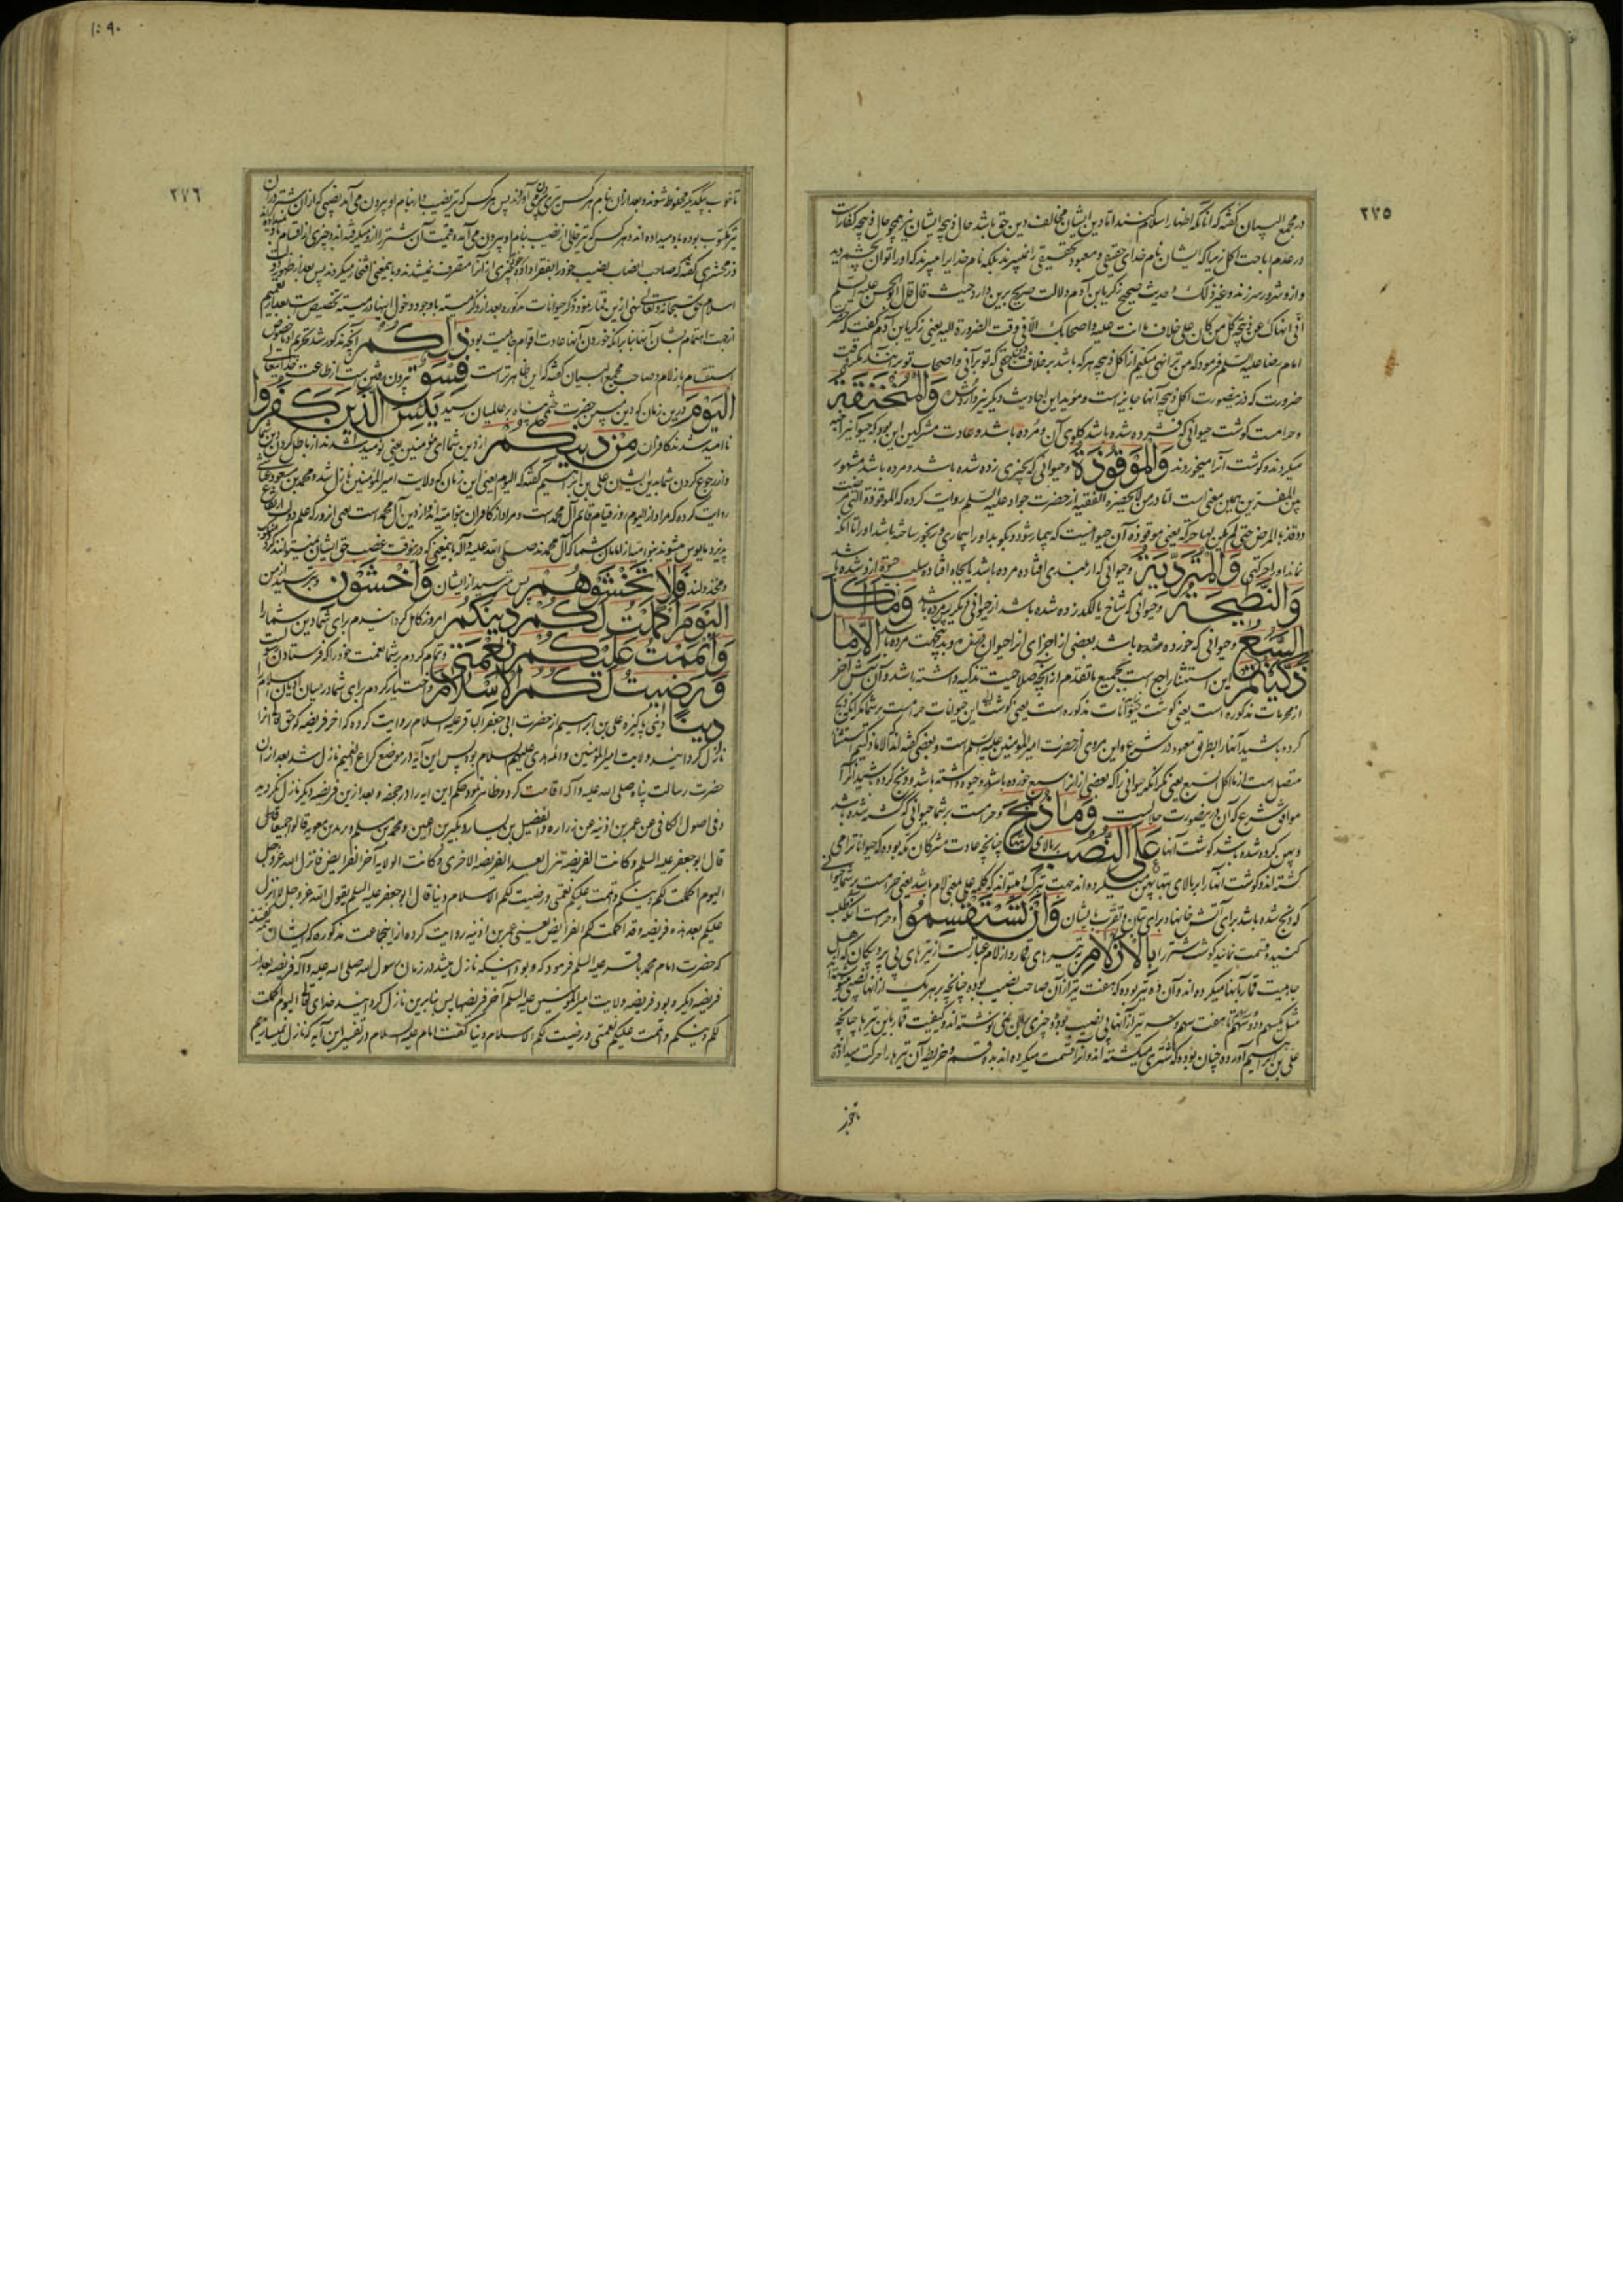 ٢٧٥
در مجمع البیان گفته که آنانکه اظهار اسلام کنند اما دین ایشان مخالف دین حق باشد حال ذبیحه ایشان نیز همچو حال ذبیحه کفار است
در عدم اباحت اکل زیرا که ایشان نام خدای حقیقی و معبود تحقیقی را نمیبرند بلکه نام خدایرا میبرند که او را توان بچشم دید
و ازو شرور سر زند و غیر ذلک و حدیث صحیح زکریا بن آدم دلالت صریح برین دارد حیث قال قال ابو الحسن علیه السلم
انی انهاک عن ذبیحة کل من کان علی خلاف ما انت علیه و اصحابک الا فی وقت الضرورة الیه یعنی زکریا بن آدم گفت که حضرت
امام رضا علیه السلم فرمود که من ترا نهی میکنم از اکل ذبیحه هر که باشد بر خلاف دین حقی که تو بر آنی و اصحاب تو بر آنند مگر وقت
ضرورت که در ینصورت اکل ذبیحه آنها جایز است و مؤید این احادیث دیگر نیز وارد شده وَالْمُنْخَنِقَةُ
و حرامست گوشت حیوانی که فشرده شده باشد گلوی آن و مرده باشد و عادت مشرکین این بود که حیوانیرا خبه
میکردند و گوشت آنرا میخوردند وَالْمَوْقُوذَةُ و حیوانی که بچیزی زده شده باشد و مرده باشد مشهور
بین المفسرین همین معنی است اما در من لا یحضره الفقیه از حضرت جواد علیه السلم روایت کرده که الموقوذة التی مرضت
و وقذها المرض حتی لم یکن بها حرکة یعنی موقوذه آن حیوانیست که بیمار شود و بکوبد او را بیماری و رنجور ساخته باشد او را تا آنکه
نماند او را حرکتی وَالْمُتَرَدِّيَةُ و حیوانی که از بلندی افتاده مرده باشد یا بچاه افتاده سلب حیوة ازو شده باشد
وَالنَّطِيحَةُ و حیوانی که شاخ یا لگد زده شده باشد از حیوانی دیگر پس مرده باشد وَمَا أَكَلَ
السَّبُعُ و حیوانی که خورده شده باشد بعضی از اجزای آنرا حیوان مفترس و بدینجهت مرده باشد إِلَّا مَا
ذَكَّيْتُمْ این استثنا راجع است بجمیع ما تقدم از آنچه صلاحیت تذکیه داشته باشد و آن شش آخر
از محرمات مذکوره است یعنی گوشت حیوانات مذکوره است یعنی گوشت این حیوانات حرامست بر شما مگر آنکه ذبح
کرده باشید آنها را بطریق معهود در شرع و این مروی از حضرت امیر المؤمنین علیه السلم است و بعضی گفته اند که الا ما ذکیتم استثنا
متصل است از ما اکل السبع یعنی مگر آنکه حیوانی را که بعضی از آنرا سبع خورده باشد و حیوة داشته باشد و ذبح کرده باشید آنرا
موافق شرع که آن در ینصورت حلالست وَمَا ذُبِحَ و حرامست بر شما حیوانی که کشته شده باشد
و پهن کرده شده باشد گوشت آنها عَلَى النُّصُبِ بر بالای بتها چنانچه عادت مشرکان مکه بوده که حیوانات را می
کشته اند و گوشت آنها را بر بالای بتها پهن میکرده اند جهت تبرک و میتواند که کلمه علی بمعنی لام باشد یعنی حرامست بر شما حیوانی
که ذبح شده باشد برای آتش خانها و برای بتان و تقرب بایشان وَأَنْ تَسْتَقْسِمُوا و حرامست آنکه طلب
کنید و قسمت نمائید گوشت شتر را بِالْأَزْلَامِ بتیرهای قمار و ازلام عبارتست از تیرهای بی پر و پیکان که اهل
جاهلیت قمار بآنها میکرده اند و آن ده تیر بوده که هفت تیر از آن صاحب نصیب بوده چنانچه بر هر یک از آنها نصیبی نوشته
مثل یکسهم و دو سهم تا هفت سهم و سه تیر از آنها بی نصیب بوده و چیزی بر آن نمی نوشته اند و کیفیت قمار باین تیرها چنانچه
علی بن ابراهیم آورده چنان بوده که شتری میکشته اند و آنرا قسمت میکرده اند بده قسم و در خریطه آن تیرها را حرکت میداده
تا خوب
١٥٩٠
٢٧٦
تا خوب بیکدیگر مخلوط شوند و بعد از آن بنام هر کس تیری بیرون می آوردند پس هر کس که تیر نصیب دار بنام او بیرون می آمد نصیبی که از آن شتر در آن
تیر مکتوب بوده باو میداده اند و هر کس که تیر خالی از نصیب بنام او بیرون می آمده قیمت آن شتر را ازو میگرفته اند و چیزی از اقسام باو نمیداده اند
زمخشری گفته که صاحب انصبا نصیب خود را بفقرا داده چیزی از آنرا متصرف نمیشدند و باین معنی افتخار میکردند پس بعد از ظهور دین
اسلام حق سبحانه و تعالی نهی ازین قمار نمود و ذکر حیوانات مذکوره بعد از ذکر میته با وجود دخول اینها در میته تخصیص است بعد از تعمیم
از جهت اهتمام بشان آنها بنا بر آنکه خوردن آنها عادت اقوام جاهلیت بود ذَلِكُمْ آنچه مذکور شد تحریم او خصوص
استقسام بازلام و صاحب مجمع البیان گفته که این ظاهرتر است فِسْقٌ بیرون رفتن است از طاعت خدایتعالی
الْيَوْمَ درین زمان که دین مبین حضرت ختمی پناه بر عالمیان رسید يَئِسَ الَّذِينَ كَفَرُوا
ناامید شدند کافران مِنْ دِينِكُمْ از دین شما ای مؤمنین یعنی نومید شدند از باطل گردیدن دین شما
و از رجوع کردن شما بدین ایشان علی بن ابراهیم گفته که الیوم یعنی این زمان که ولایت امیر المؤمنین نازل شد و محمد بن مسعود عیاشی
روایت کرده که مراد از الیوم روز قیام قائم آل محمد است و مراد از کافران بنو امیه اند از دین آل محمد است یعنی از روز که علم دولت ارتفاع
پذیرد مایوس میشوند بنو امیه از اطاعت شما که آل محمدند صلی الله علیه و آله باینمعنی که در ینوقت غصب حق ایشان نمیتوانند کرد
و مخذولند فَلَا تَخْشَوْهُمْ پس مترسید از ایشان وَاخْشَوْنِ و بترسید از من
الْيَوْمَ أَكْمَلْتُ لَكُمْ دِينَكُمْ امروز کامل گردانیدم برای شما دین شما را
وَأَتْمَمْتُ عَلَيْكُمْ نِعْمَتِي و تمام کردم بر شما نعمت خود را که فرستادن رسول است
وَرَضِيتُ لَكُمُ الْإِسْلَامَ و اختیار کردم برای شما در میان ادیان اسلام را
دِينًا دینی پاکیزه علی بن ابراهیم از حضرت ابی جعفر الباقر علیه السلام روایت کرده که آخر فریضه که حق تعالی آنرا
نازل گردانید ولایت امیر المؤمنین و ائمه هدی علیهم السلام بود پس این آیه در موضع کراع الغمیم نازل شد بعد از آن
حضرت رسالت پناه صلی الله علیه و آله اقامت کرد و ظاهر نمود حکم این آیه را در جحفه و بعد ازین فریضه دیگر نازل نگردید
و فی اصول الکافی عن عمر بن اذینه عن زراره و الفضیل بن یسار و بکیر بن اعین و محمد بن مسلم و برید بن معویه قالوا جمیعا قال
قال ابو جعفر علیه السلم و کانت الفریضة تنزل بعد الفریضة الاخری و کانت الولایة آخر الفرایض فانزل الله عز و جل
الیوم اکملت لکم دینکم و اتممت علیکم نعمتی و رضیت لکم الاسلام دینا قال ابو جعفر علیه السلم یقول الله عز و جل لا انزل
علیکم بعد هذه فریضة قد اکملت لکم الفرایض یعنی عمر بن اذینه روایت کرده از اینجماعت مذکوره که ایشان گفتند
که حضرت امام محمد باقر علیه السلم فرمود که و بود اینکه نازل میشد در زمان رسول الله صلی الله علیه و آله فریضه بعد از
فریضه دیگر و بود فریضه ولایت امیر المؤمنین علیه السلم آخر فریضها پس بنابرین نازل گردانید خدای تعالی الیوم اکملت
لکم دینکم و اتممت علیکم نعمتی و رضیت لکم الاسلام دینا گفت امام علیه السلام در تفسیر این آیه که نازل نمیسازیم